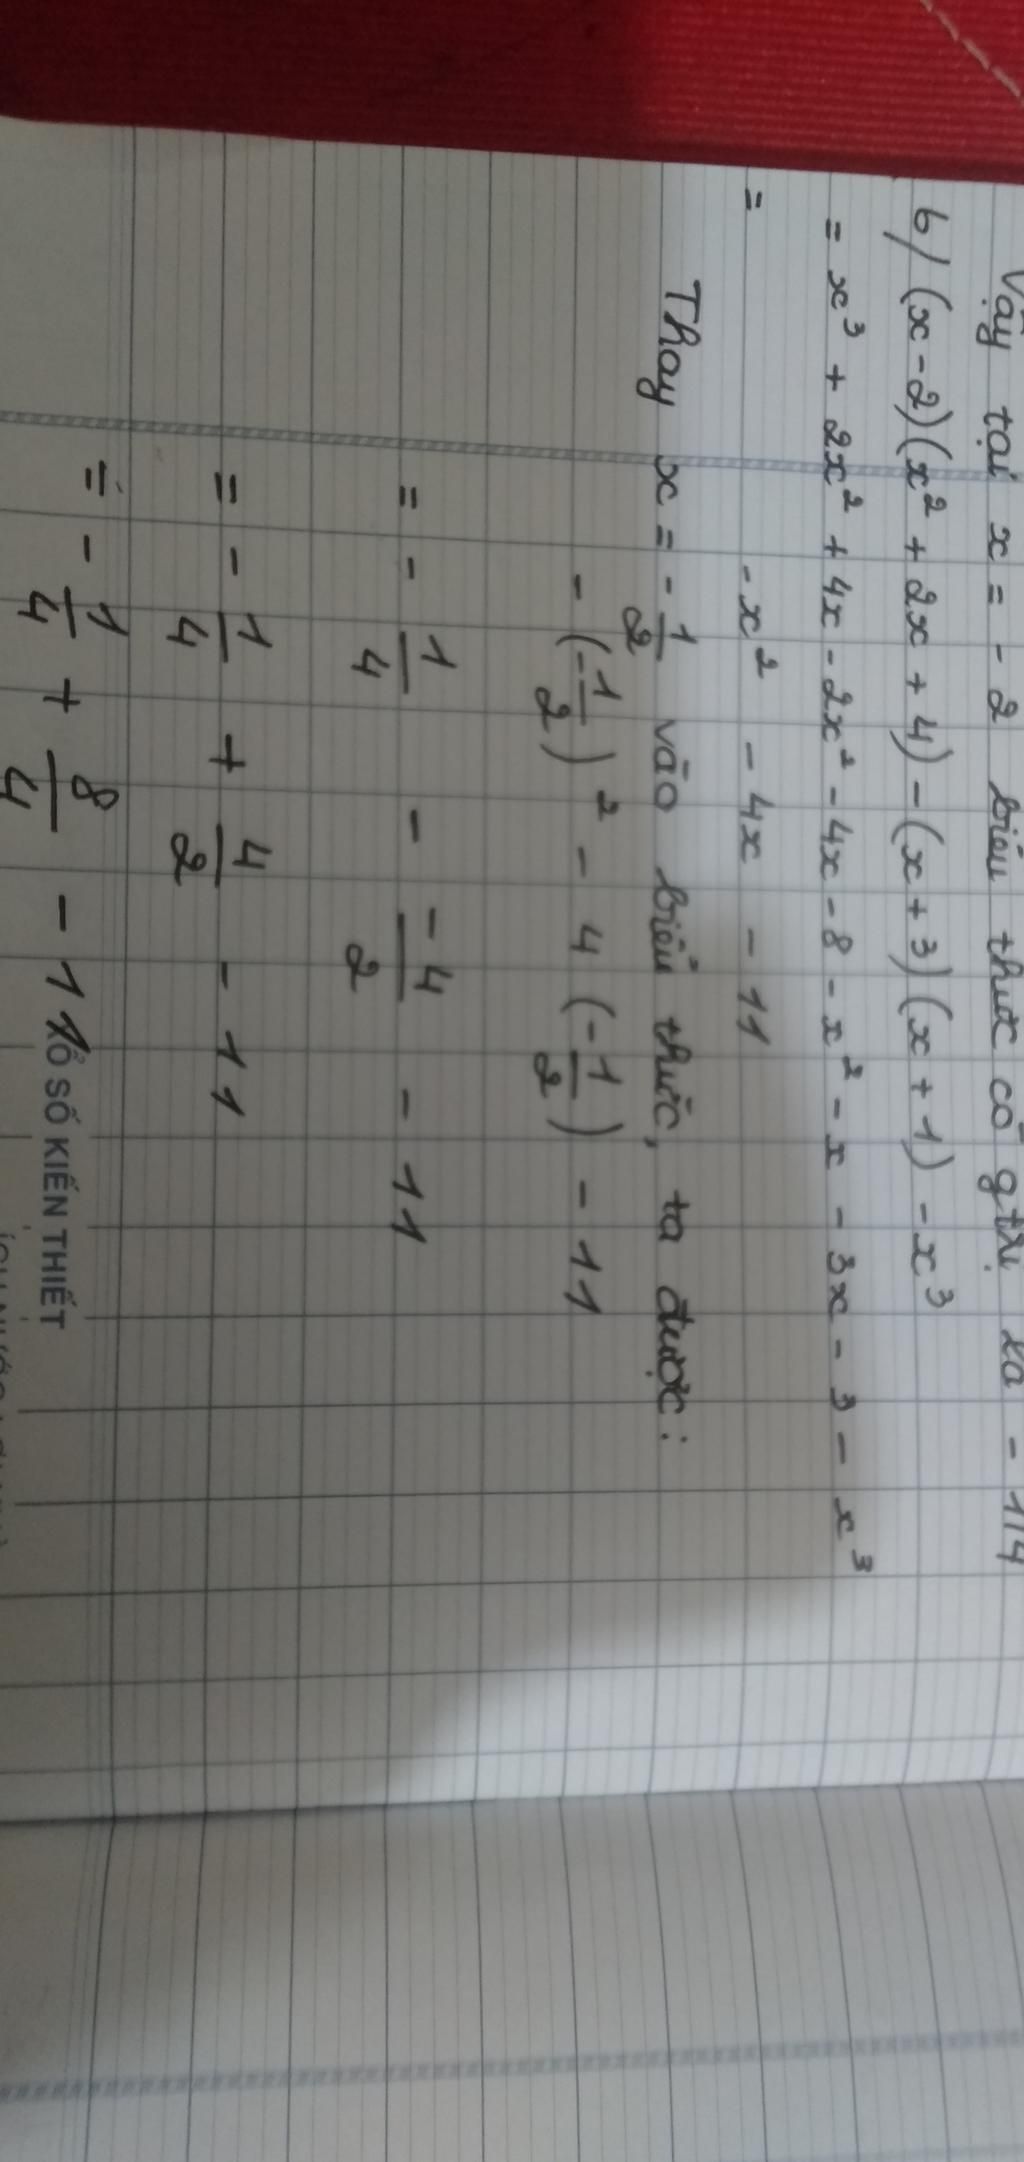 Vậy tại x = - 2 biểu thức có gtrị là - 114
b/ (x-2)(x² + 2x + 4) - (x+3)(x+1) - x³
= x³ + 2x² + 4x - 2x² - 4x - 8 - x² - x - 3x - 3 - x³
= - x² - 4x - 11
Thay x = - 1/2 vào biểu thức, ta được:
- (-1/2)² - 4 (-1/2) - 11
= - 1/4 - -4/2 - 11
= - 1/4 + 4/2 - 11
= - 1/4 + 8/4 - 11
XỔ SỐ KIẾN THIẾT